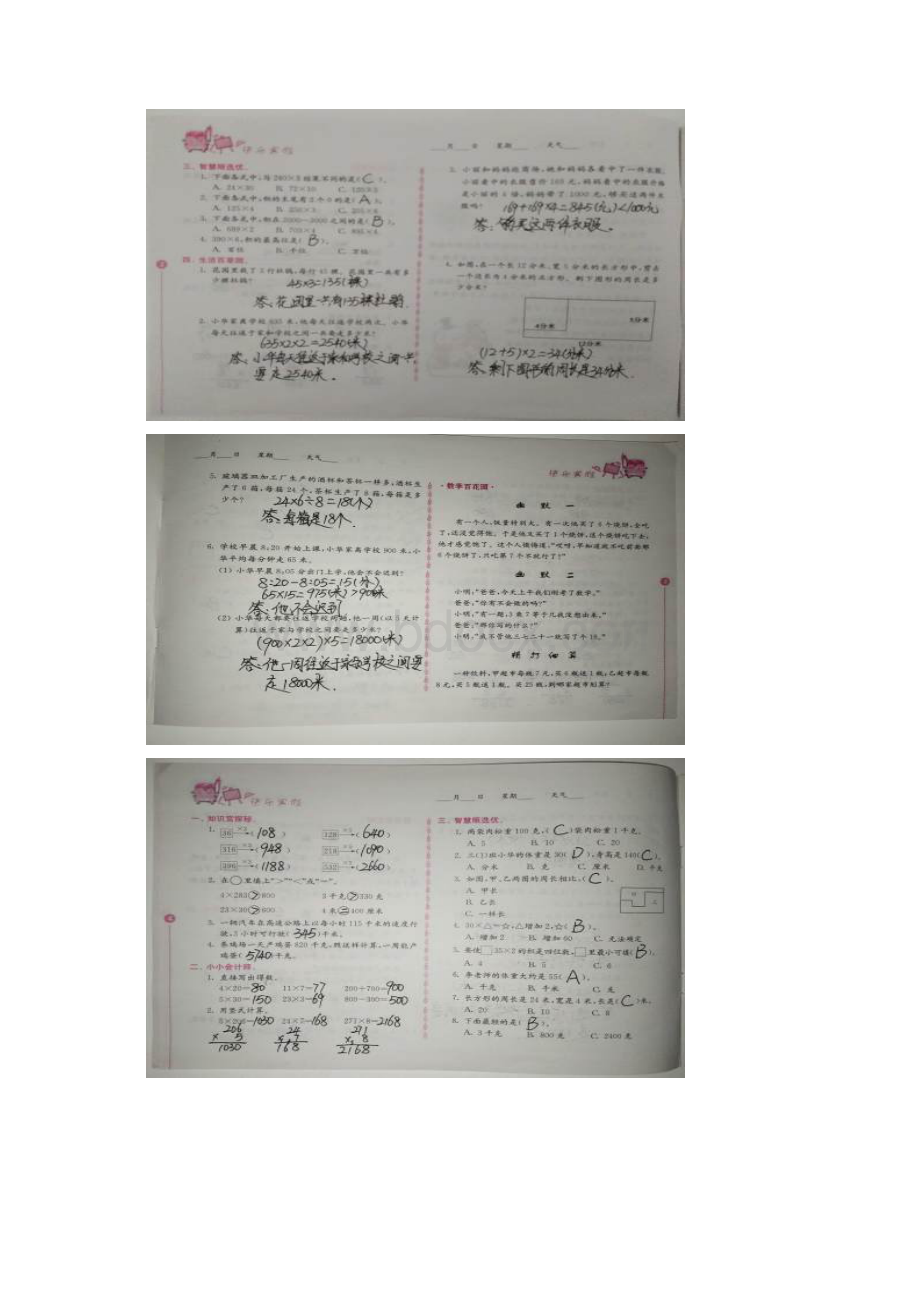 月 日 星期 天气
快乐寒假
三、智慧眼选优。
1. 下面各式中,与240×3结果不同的是( C )。
A. 24×30 B. 72×10 C. 120×3
2. 下面各式中,积的末尾有三个0的是( A )。
A. 125×4 B. 250×3
3. 下面各式中,积在2000~3000之间的是( B )。
A. 698×2 B. 703×4
4. 390×6,积的最高位是( B )。
A. 百位 B. 千位 C. 万位
四、生活百草园。
1. 花园里栽了3行杜鹃,每行45棵。花园里一共有多
少棵杜鹃?
45×3=135(棵)
答:花园里一共有135棵杜鹃.
2. 小华家离学校635米,他每天往返学校两次。小华
每天往返于家和学校之间一共要走多少米?
635×2×2=2540(米)
答:小华每天往返于家和学校之间一共
要走2540米。
3. 小丽和妈妈逛商场,她和妈妈各看中了一件衣服。
小丽看中的衣服售价169元,妈妈看中的衣服价格
是小丽的4倍。妈妈带了1000元,够买这两件衣
服吗?
169+169×4=845(元)<1000元
答:够买这两件衣服。
4. 如图,在一个长12分米、宽5分米的长方形中,剪去
一个边长为4分米的正方形。剩下图形的周长是多
少分米?
4分米
5分米
12分米
(12+5)×2=34(分米)
答:剩下图形的周长是34分米.
月 日 星期 天气
快乐寒假
5. 玻璃器皿加工厂生产的酒杯和茶杯一样多,酒杯生
产了6箱,每箱24个,茶杯生产了8箱,每箱是多
少个?
24×6÷8=18(个)
答:每箱是18个.
6. 学校早晨8:20开始上课,小华家离学校900米,小
华平均每分钟走65米。
(1) 小华早晨8:05分出门上学,他会不会迟到?
8:20-8:05=15(分)
65×15=975(米)>900米
答:他不会迟到
(2) 小华每天都要往返学校两趟,他一周(以5天计
算)往返于家与学校之间要走多少米?
(900×2×2)×5=18000(米)
答:他一周往返于家与学校之间要
走18000米.
·数学百花园·
幽默一
有一个人,饭量特别大。有一次他买了6个烧饼,全吃
了,还没觉得饱。于是他又买了1个烧饼,这个烧饼吃下去,
他才感觉饱了。这个人懊悔道:“哎呀,早知道就不吃前面那
6个烧饼了,只吃第7个不就行了?”
幽默二
小明:“爸爸,今天上午我们刚考了数学。”
爸爸:“你有不会做的吗?”
小明:“有一题,3乘7等于几我没想出来。”
爸爸:“那你写的什么?”
小明:“我不管他三七二十一就写了个18。”
精打细算
一种饮料,甲超市每瓶7元,买6瓶送1瓶;乙超市每瓶
8元,买5瓶送1瓶。买25瓶,到哪家超市划算?
快乐寒假
月 日 星期 天气
一、知识宫探秘。
1. 36 ×3 (108) 128 ×5 (640)
316 ×3 (948) 218 ×5 (1090)
396 ×3 (1188) 532 ×5 (2660)
2. 在○里填上“>”“<”或“=”。
4×283>800 3千克>330克
23×30>600 4米=400厘米
3. 一辆汽车在高速公路上以每小时115千米的速度行
驶,3小时可行驶(345)千米。
4. 养鸡场一天产鸡蛋820千克,照这样计算,一周能产
鸡蛋(5740)千克。
二、小小会计师。
1. 直接写出得数。
4×20=80 11×7=77 200+700=900
5×30=150 23×3=69 800-300=500
2. 用竖式计算。
5×206=1030 24×7=168 271×8=2168
206 24 271
× 5 × 7 × 8
1030 168 2168
三、智慧眼选优。
1. 两袋肉松重100克,( C )袋肉松重1千克。
A. 5 B. 10 C. 20
2. 三(1)班小华的体重是30( D ),身高是140( C )。
A. 分米 B. 克 C. 厘米 D. 千克
3. 如图,甲、乙两图的周长相比,( C )。
A. 甲长
B. 乙长
C. 一样长
4. 30×△=☆,△增加2,☆( B )。
A. 增加2 B. 增加60 C. 无法确定
5. 要使□35×2的积是四位数,□里最小可填( B )。
A. 4 B. 5 C. 6
6. 李老师的体重大约是55( A )。
A. 千克 B. 千米 C. 克
7. 长方形的周长是24米,宽是4米,长是( C )米。
A. 20 B. 10 C. 8
8. 下面最轻的是( B )。
A. 3千克 B. 800克 C. 2400克